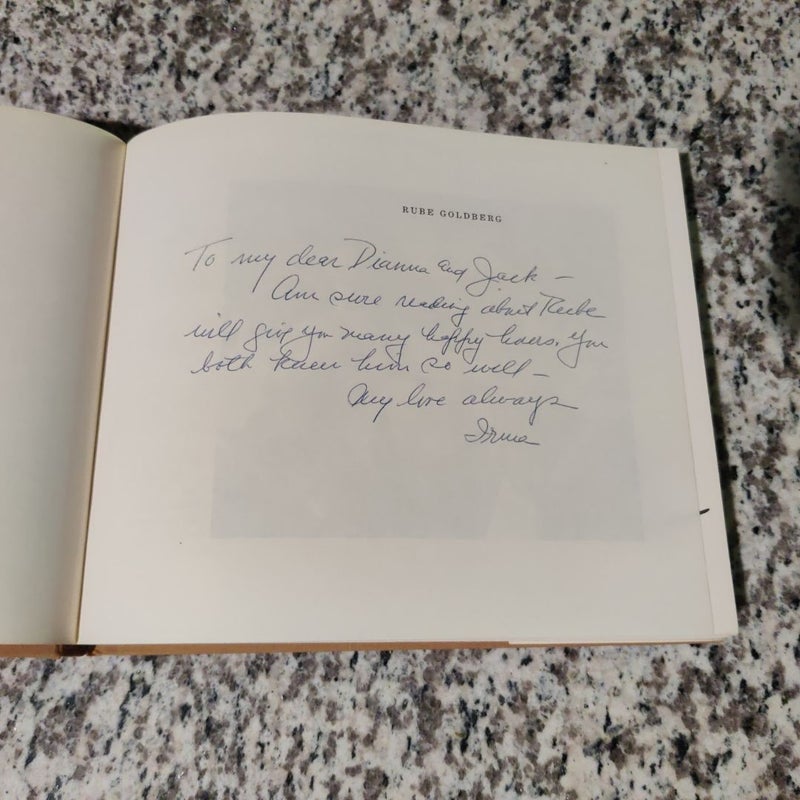 RUBE GOLDBERG
To my dear Dianna and Jack —
Am sure reading about Rube
will give you many happy hours. You
both knew him so well —
My love always
Irma